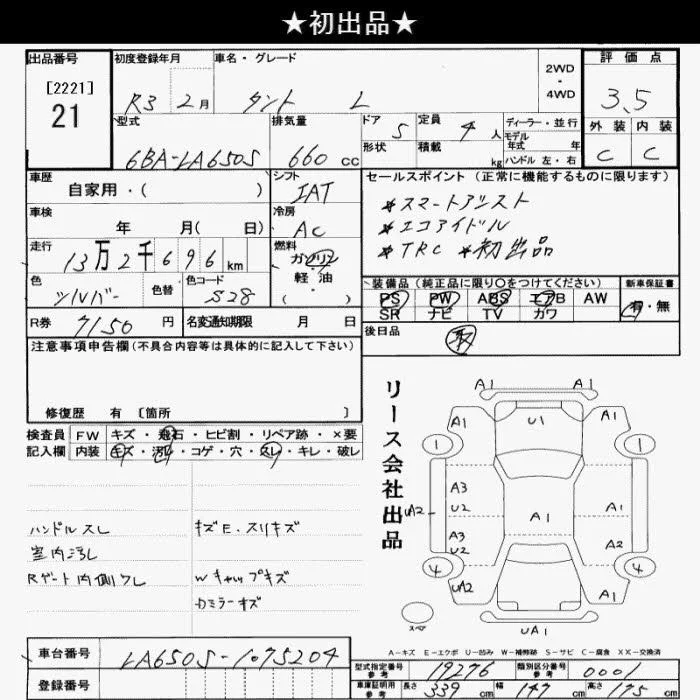 ★初出品★
出品番号
[2221]
21
初度登録年月
R3 2月
車名・グレード
タント L
2WD
・
4WD
評価点
3.5
型式
6BA-LA650S
排気量
660 cc
ドア 5
定員 4人
形状
積載 kg
ディーラー・並行
モデル
年式 年
ハンドル 左・右
外装 内装
C C
車歴
自家用・( )
シフト
IAT
セールスポイント (正常に機能するものに限ります)
*スマートアシスト
*エコアイドル
*TRC *初出品
車検
年 月( 日)
冷房
AC
走行
13万2千696km
燃料
ガソリン
軽・油
( )
色
シルバー
色替
色コード
S28
装備品(純正品に限り○をつけてください)
PS PW ABS エアB AW
SR ナビ TV カワ
新車保証書
有・無
R券 7150 円
名変通知期限 月 日
後日品
取
注意事項申告欄(不具合内容等は具体的に記入して下さい)
修復歴 有 [箇所 ]
検査員
記入欄
FW キズ・飛石・ヒビ割・リペア跡・×要
内装 キズ・汚れ・コゲ・穴・スレ・キレ・破レ
ハンドルスレ
室内汚レ
Rゲート内側スレ
キズE・スリキズ
Wキャップキズ
Dミラーキズ
リース会社出品
A1 A1
A1 U1 A1
1 1
A3
U2
A1 A1
UA2
A3
U2
A2
4 4
UA2 A1
スペア
UA1
A-キズ E-エクボ U-凹み W-補修跡 S-サビ C-腐食 XX-交換済
車台番号
LA650S-1075204
登録番号
型式指定番号
参考
19276
類別区分番号
参考
0001
車庫証明用
参考
長さ 339 cm
幅 147 cm
高さ 175 cm